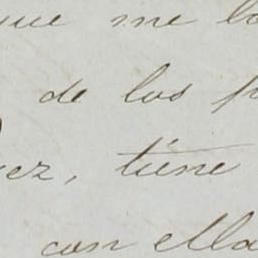 que me lo
de los p
ez, tiene
con ella